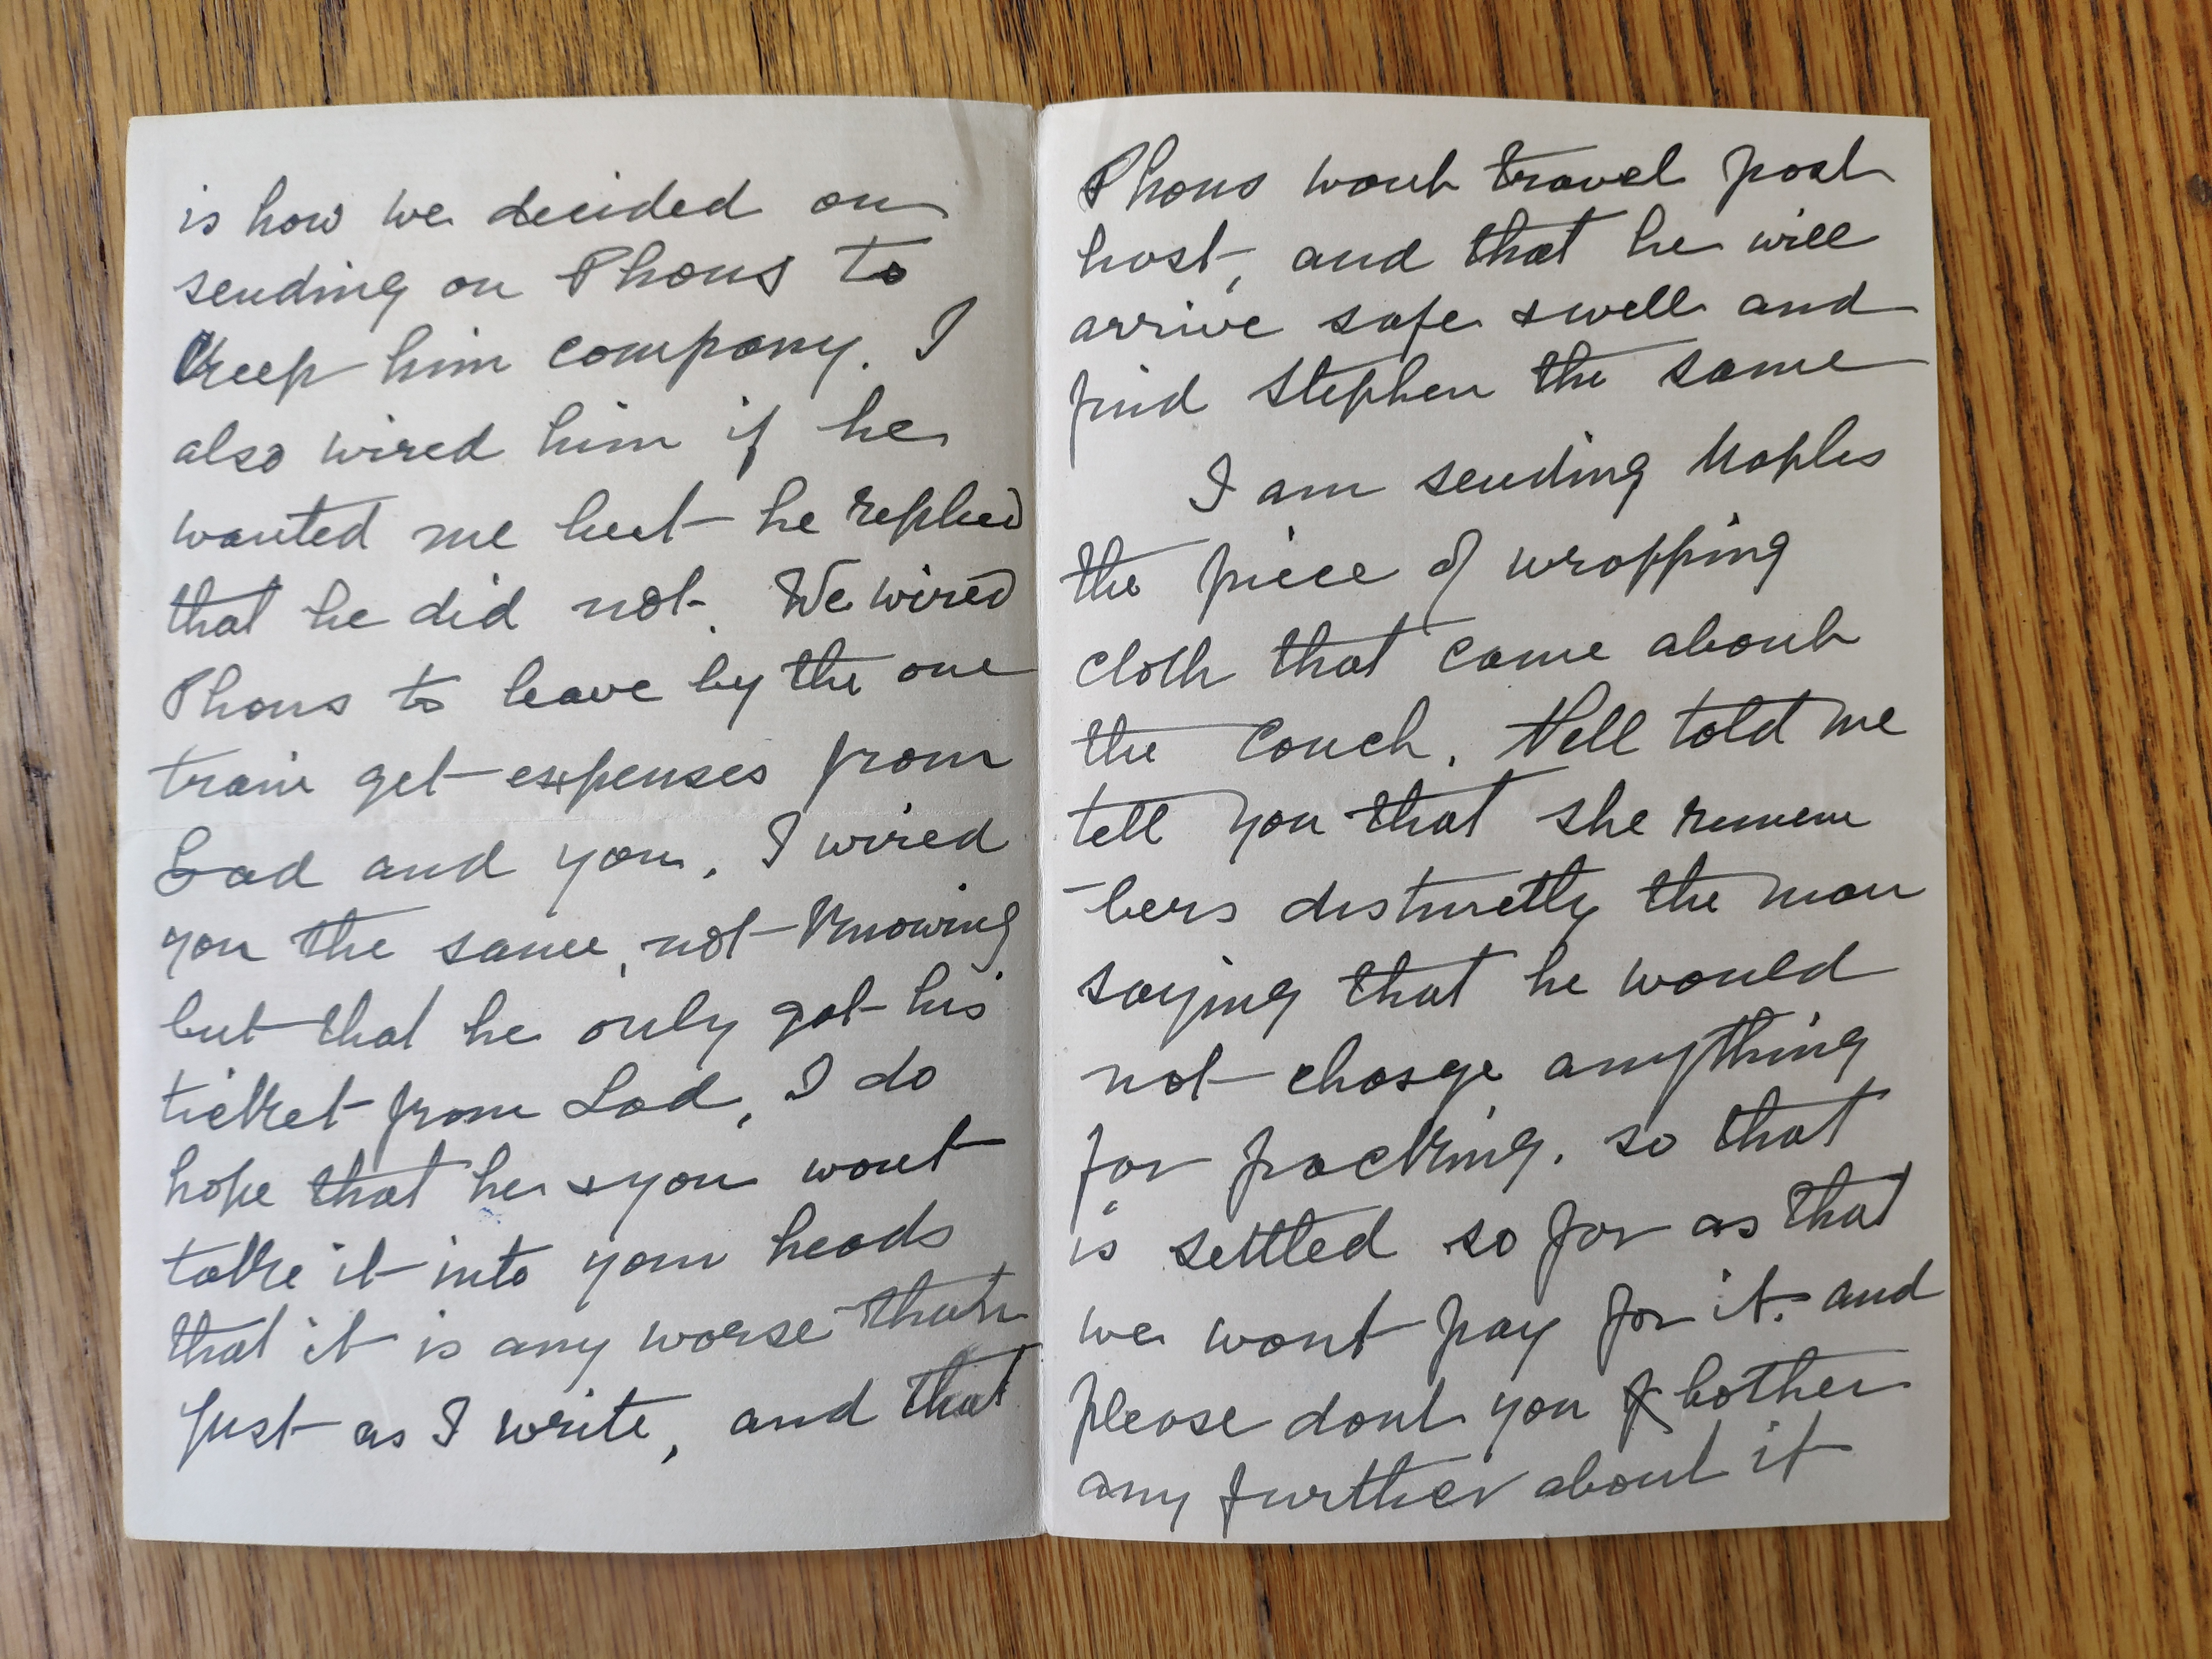 is how we decided on
sending on Phons to
Keep him company. I
also wired him if he
wanted me but he replied
that he did not. We wired
Phons to leave by the one
train get expenses from
Lad and you. I wired
you the same, not Knowing
but that he only got his
ticket from Lad, I do
hope that he & you wont
take it into your heads
that it is any worse than
just as I write, and that
Phons wont travel post
host, and that he will
arrive safe & well and
find Stephen the same
I am sending Naples
the piece of wrapping
cloth that came about
the Couch. Nell told me
tell you that she remem
-bers distinctly the man
saying that he would
not charge anything
for packing. so that
is settled so far as that
we wont pay for it. and
please dont you bother
any further about it